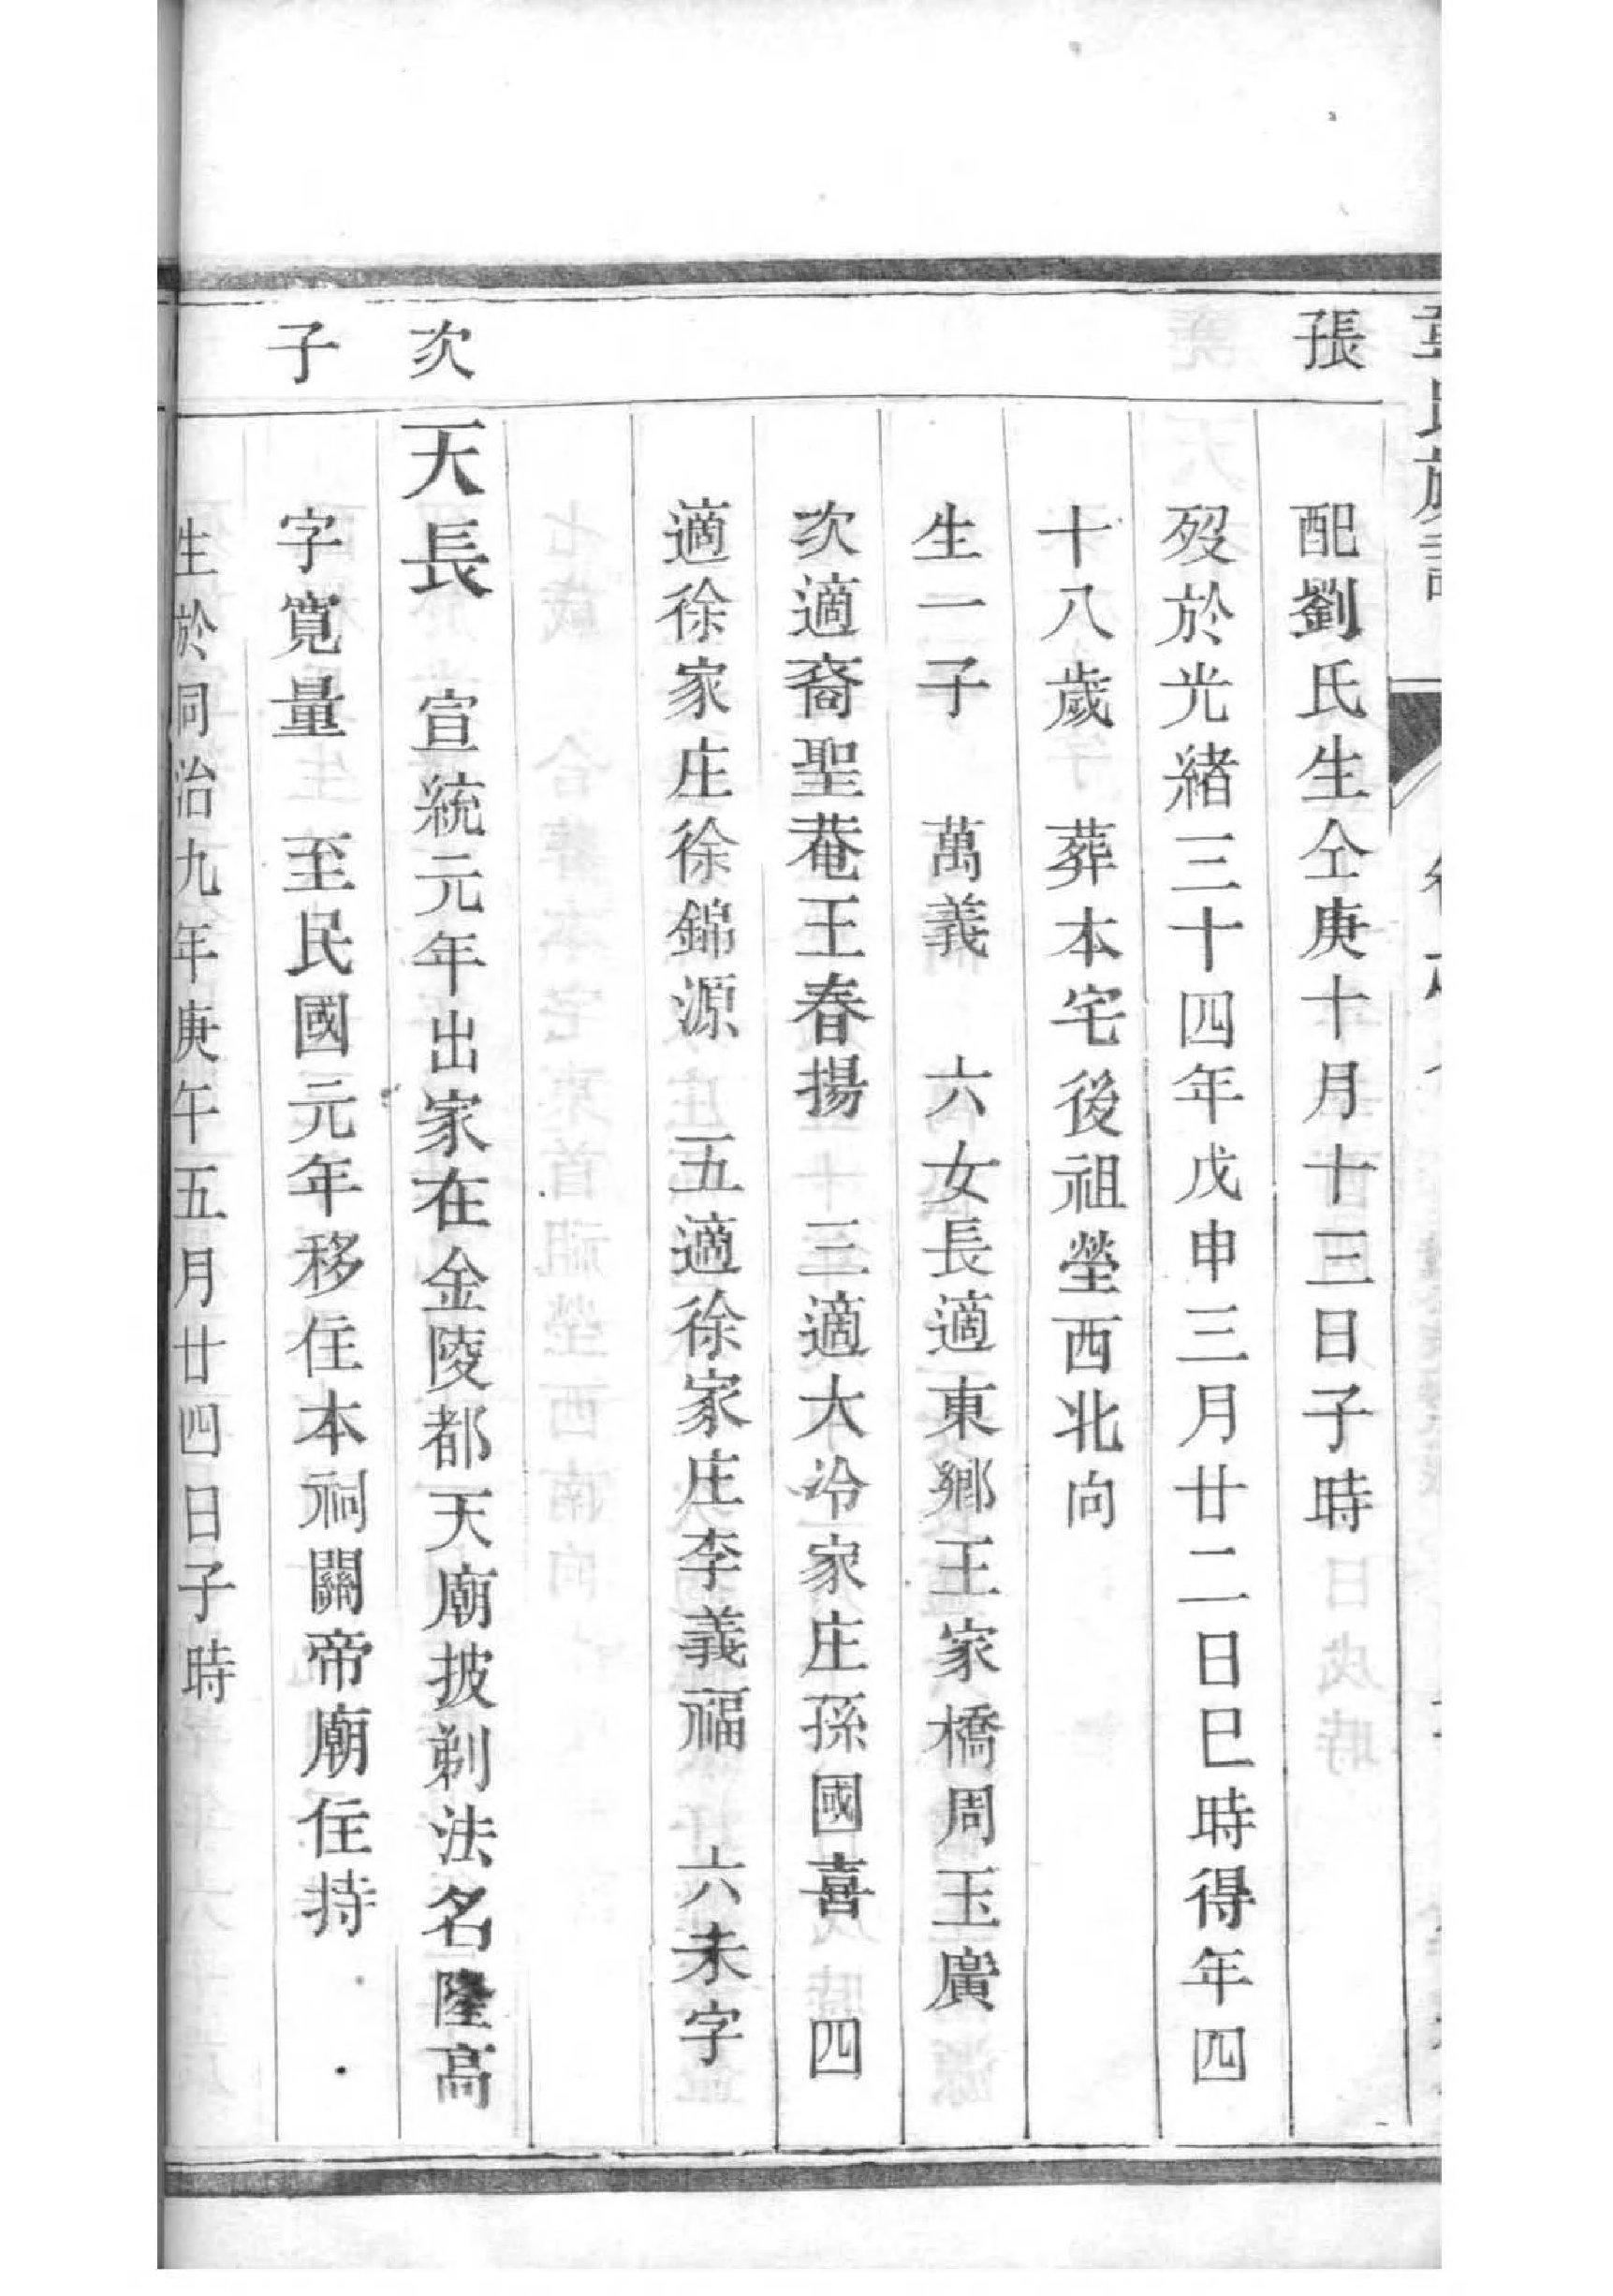 張
配劉氏生仝庚十月十三日子時
歿於光緒三十四年戊申三月廿二日巳時得年四
十八歲 葬本宅後祖塋西北向
生一子 萬義 六女長適東鄉王家橋周玉廣
次適裔聖菴王春揚 三適大冷家庄孫國喜 四
適徐家庄徐錦源 五適徐家庄李義福 六未字
次
天長 宣統元年出家在金陵都天廟披剃法名隆高
子
字寬量 至民國元年移住本祠關帝廟住持
生於同治九年庚午五月廿四日子時